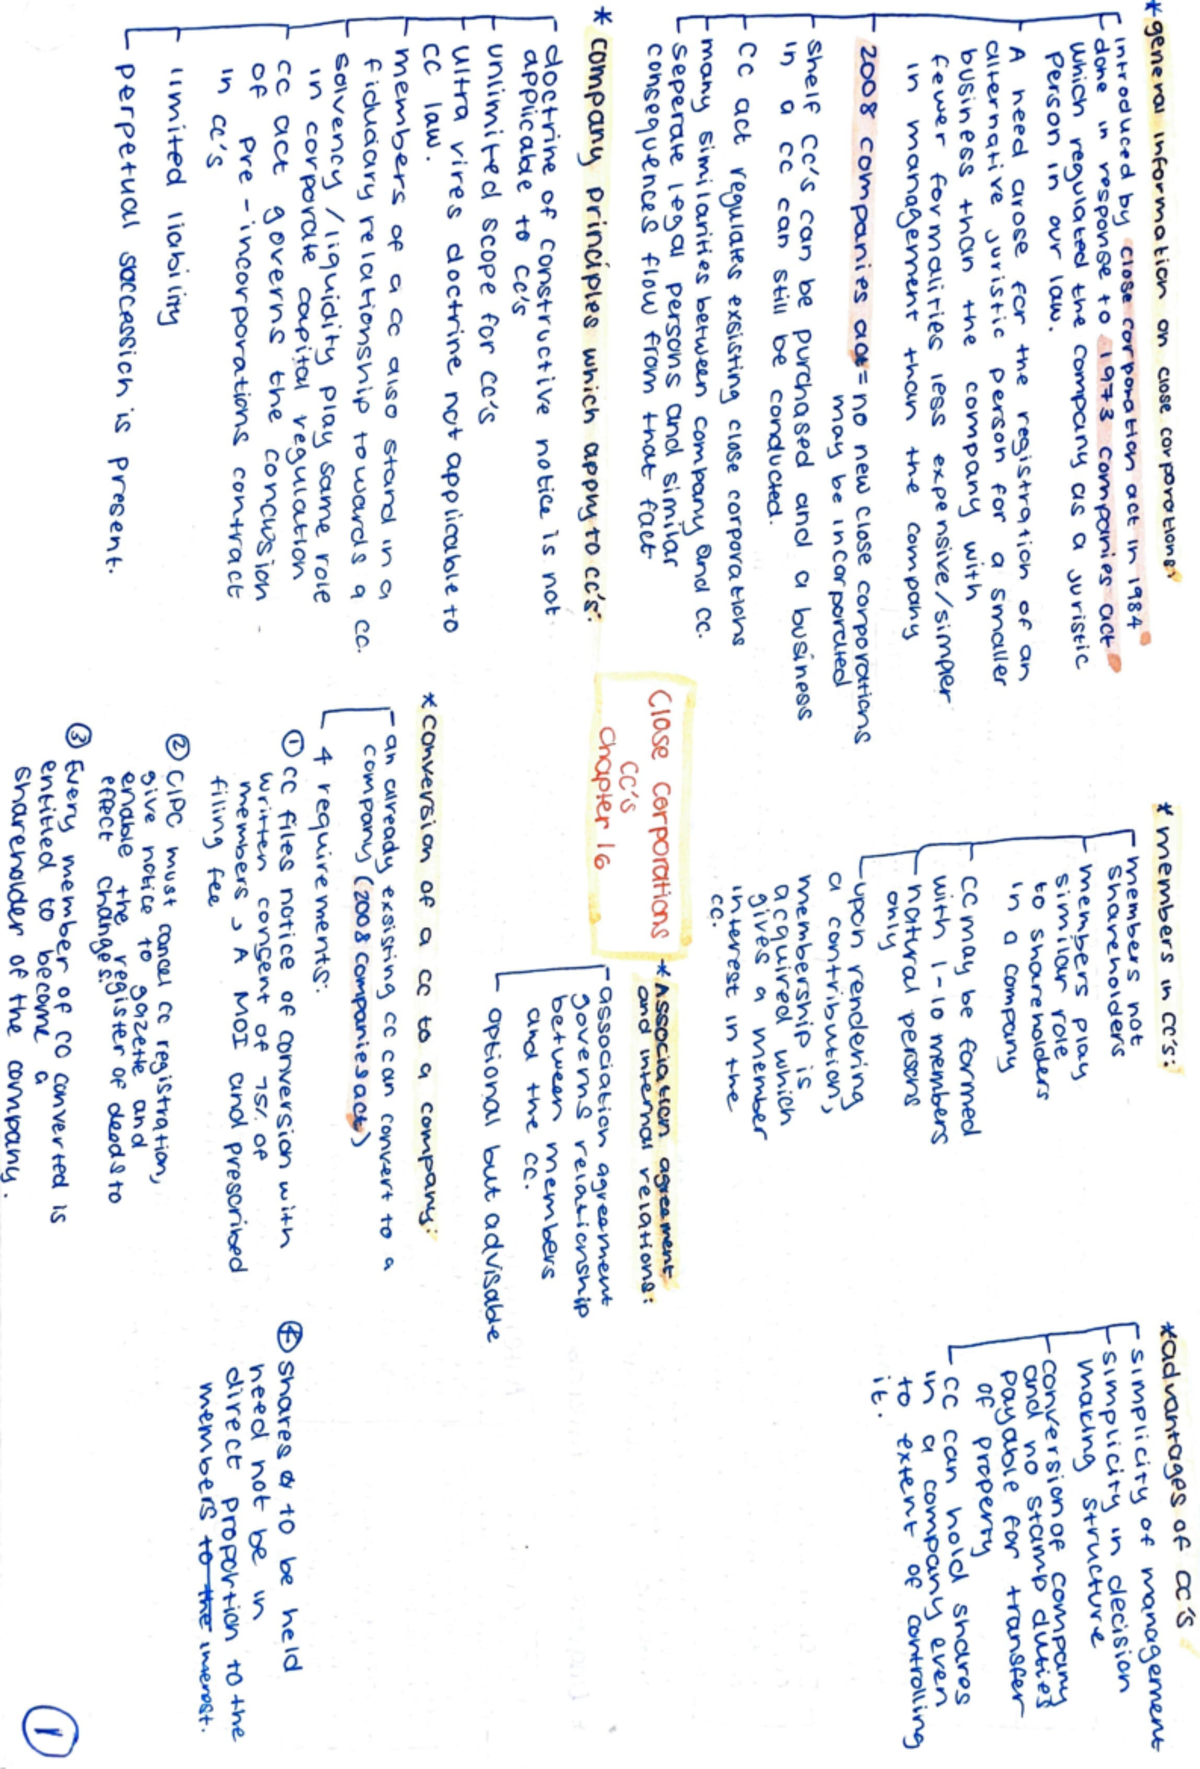 *general information on close corporations:
introduced by close corporation act in 1984
- done in response to 1973 companies act
which regulated the company as a juristic
person in our law.
- A need arose for the registration of an
alternative juristic person for a smaller
business than the company with
fewer formalities less expensive/simpler
in management than the company
- 2008 companies act = no new close corporations
may be incorporated
shelf cc's can be purchased and a business
in a cc can still be conducted.
- CC act regulates exsisting close corporations
- many similarities between company and cc.
seperate legal persons and similar
consequences flow from that fact
* company principles which apply to cc's:
- doctrine of constructive notice is not
applicable to cc's
unlimited scope for cc's
- ultra vires doctrine not applicable to
cc law.
- members of a cc also stand in a
fiduciary relationship towards a cc.
solvency/liquidity play same role
in corporate capital regulation
- cc act governs the conclusion
of pre-incorporations contract
in cc's
- limited liability
- perpetual succession is present.
Close corporations
CC's
Chapter 16
* members in cc's:
- members not
shareholders
- members play
similar role
to shareholders
in a company
- CC may be formed
with 1-10 members
- natural persons
only
- upon rendering
a contribution,
membership is
acquired which
gives a member
interest in the
cc.
*Association agreement
and internal relations:
- association agreement
governs relationship
between members
and the cc.
- optional but advisable
*conversion of a cc to a company:
- an already exsisting cc can convert to a
company (2008 companies act)
- 4 requirements:
① CC files notice of conversion with
written consent of 75% of
members, A MOI and prescribed
filing fee
② CIPC must cancel cc registration,
give notice to gazette and
enable the register of deeds to
effect changes.
③ Every member of CC converted is
entitled to become a
shareholder of the company.
④ shares to be held
need not be in
direct proportion to the
members to the interest.
*advantages of cc's
- simplicity of management
- simplicity in decision
making structure
- conversion of company
and no stamp duties
payable for transfer
of property
- CC can hold shares
in a company even
to extent of controlling
it.
1